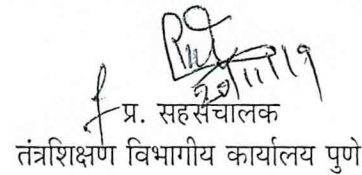 20/11/19
प्र. सहसंचालक
तंत्रशिक्षण विभागीय कार्यालय पुणे